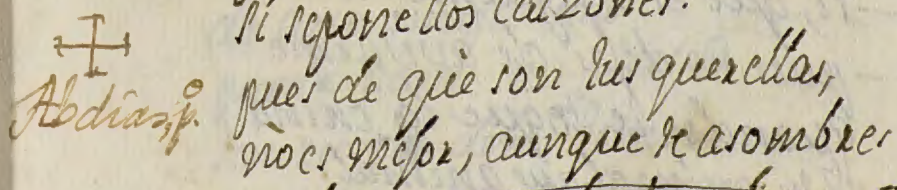 si se pone llos calzones.
Abdias, p.º
pues de què son tus querellas,
nò es mejor, aunque te asombres